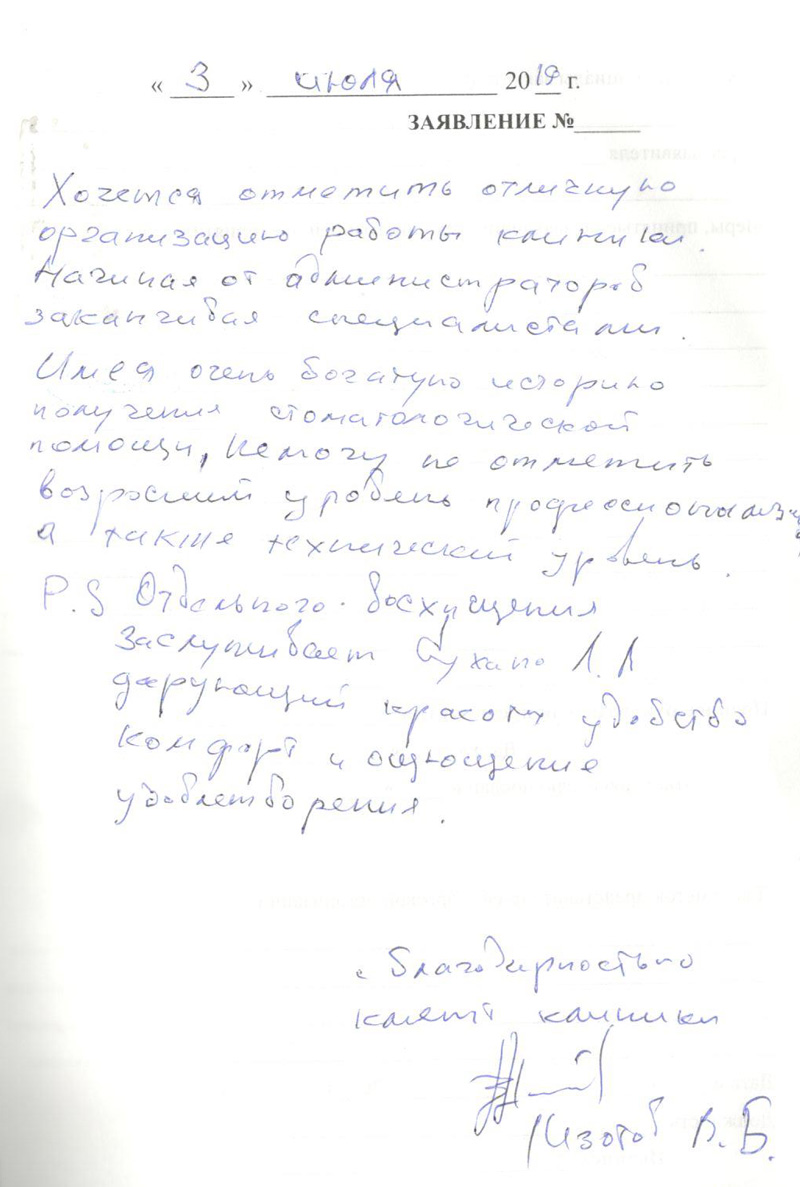 « 3 » июля 2019 г.
ЗАЯВЛЕНИЕ №
Хочется отметить отличную
организацию работы клиники.
Начиная от администраторов
заканчивая специалистами.
Имея очень богатую историю
получения стоматологической
помощи, немогу не отметить
возросший уровень профессионализма
а также технический уровень.
P.S Отдельного восхищения
заслуживает Сухано Л.Л
дарующий красоту удобство
комфорт и ощющение
удовлетворения.
с благодарностью
клиент клиники
Изотов В.Б.